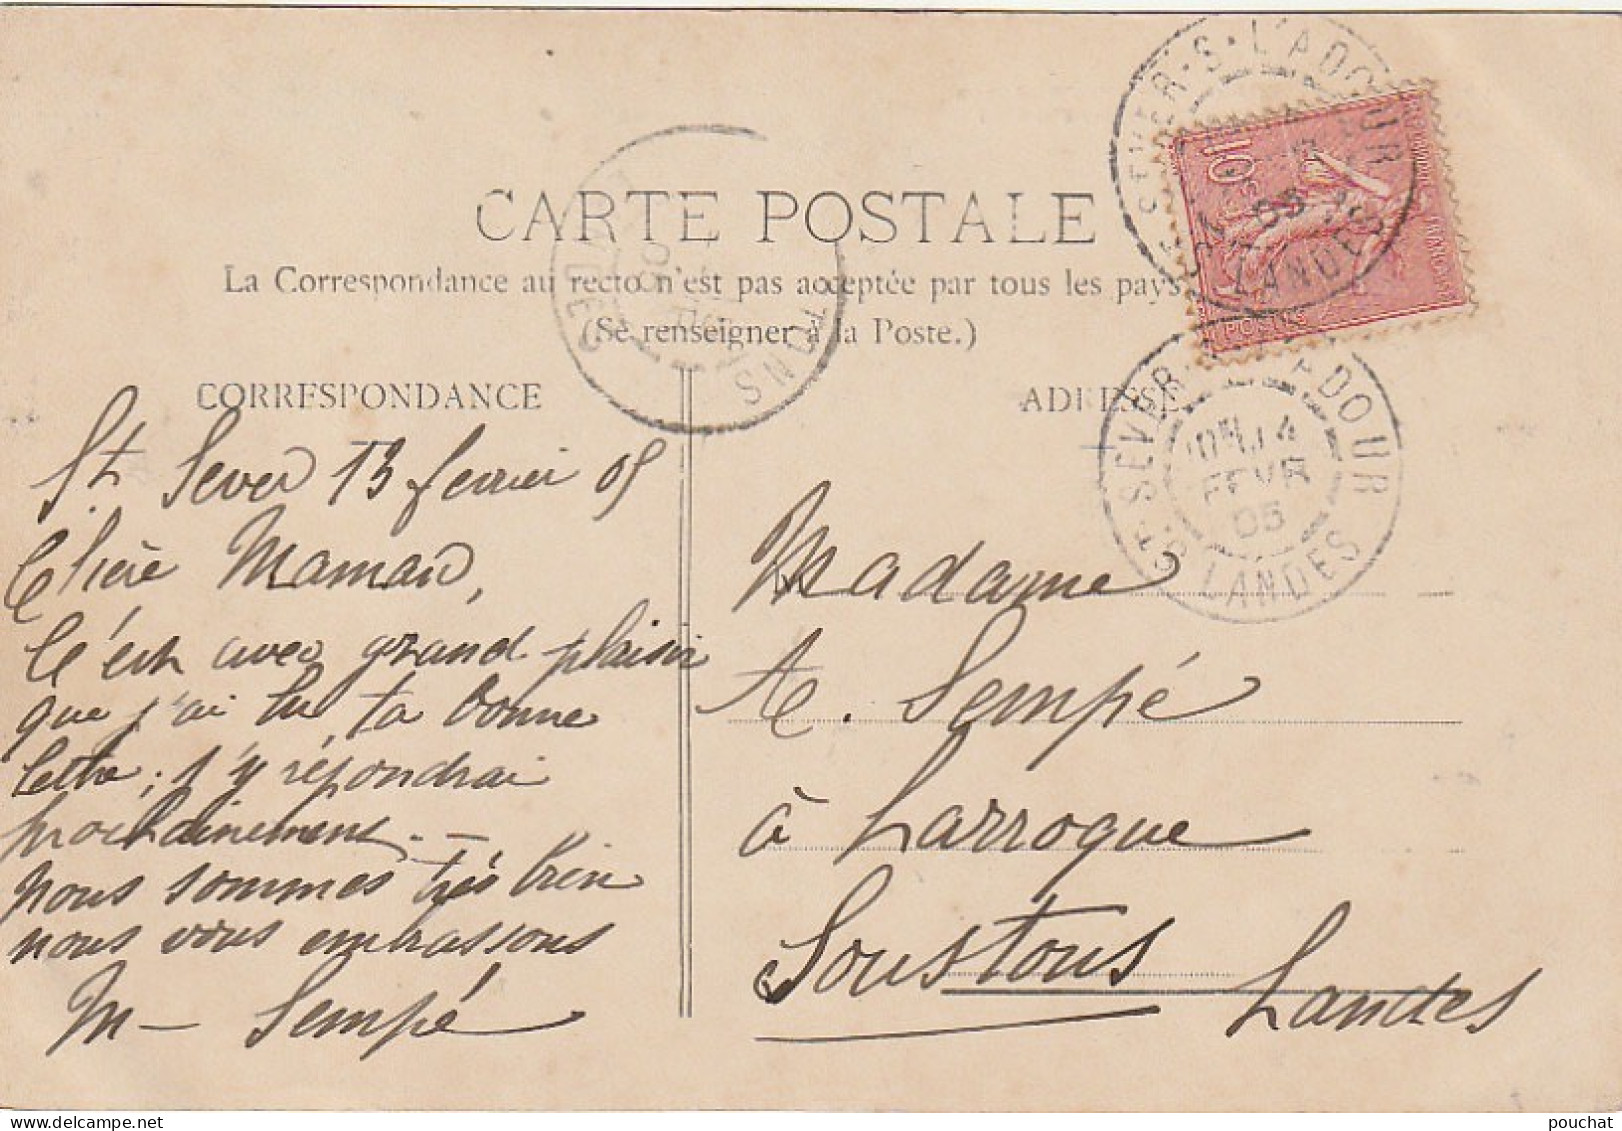 CARTE POSTALE
La Correspondance au recto n'est pas acceptée par tous les pays
(Se renseigner à la Poste.)
CORRESPONDANCE
St Sever 13 fevrier 05
Chère Maman,
C'est avec grand plaisir
que j'ai lu ta bonne
lettre; j'y répondrai
prochainement. —
nous sommes très bien
nous vous embrassons
M — Sempé
ADRESSE
Madame
A. Sempé
à Larroque
Soustons
Landes
10
POSTES
ST SEVER-S-L'ADOUR
05
LANDES
ST SEVER ADOUR
14
FEVR
05
LANDES
TONS
05
pouchat